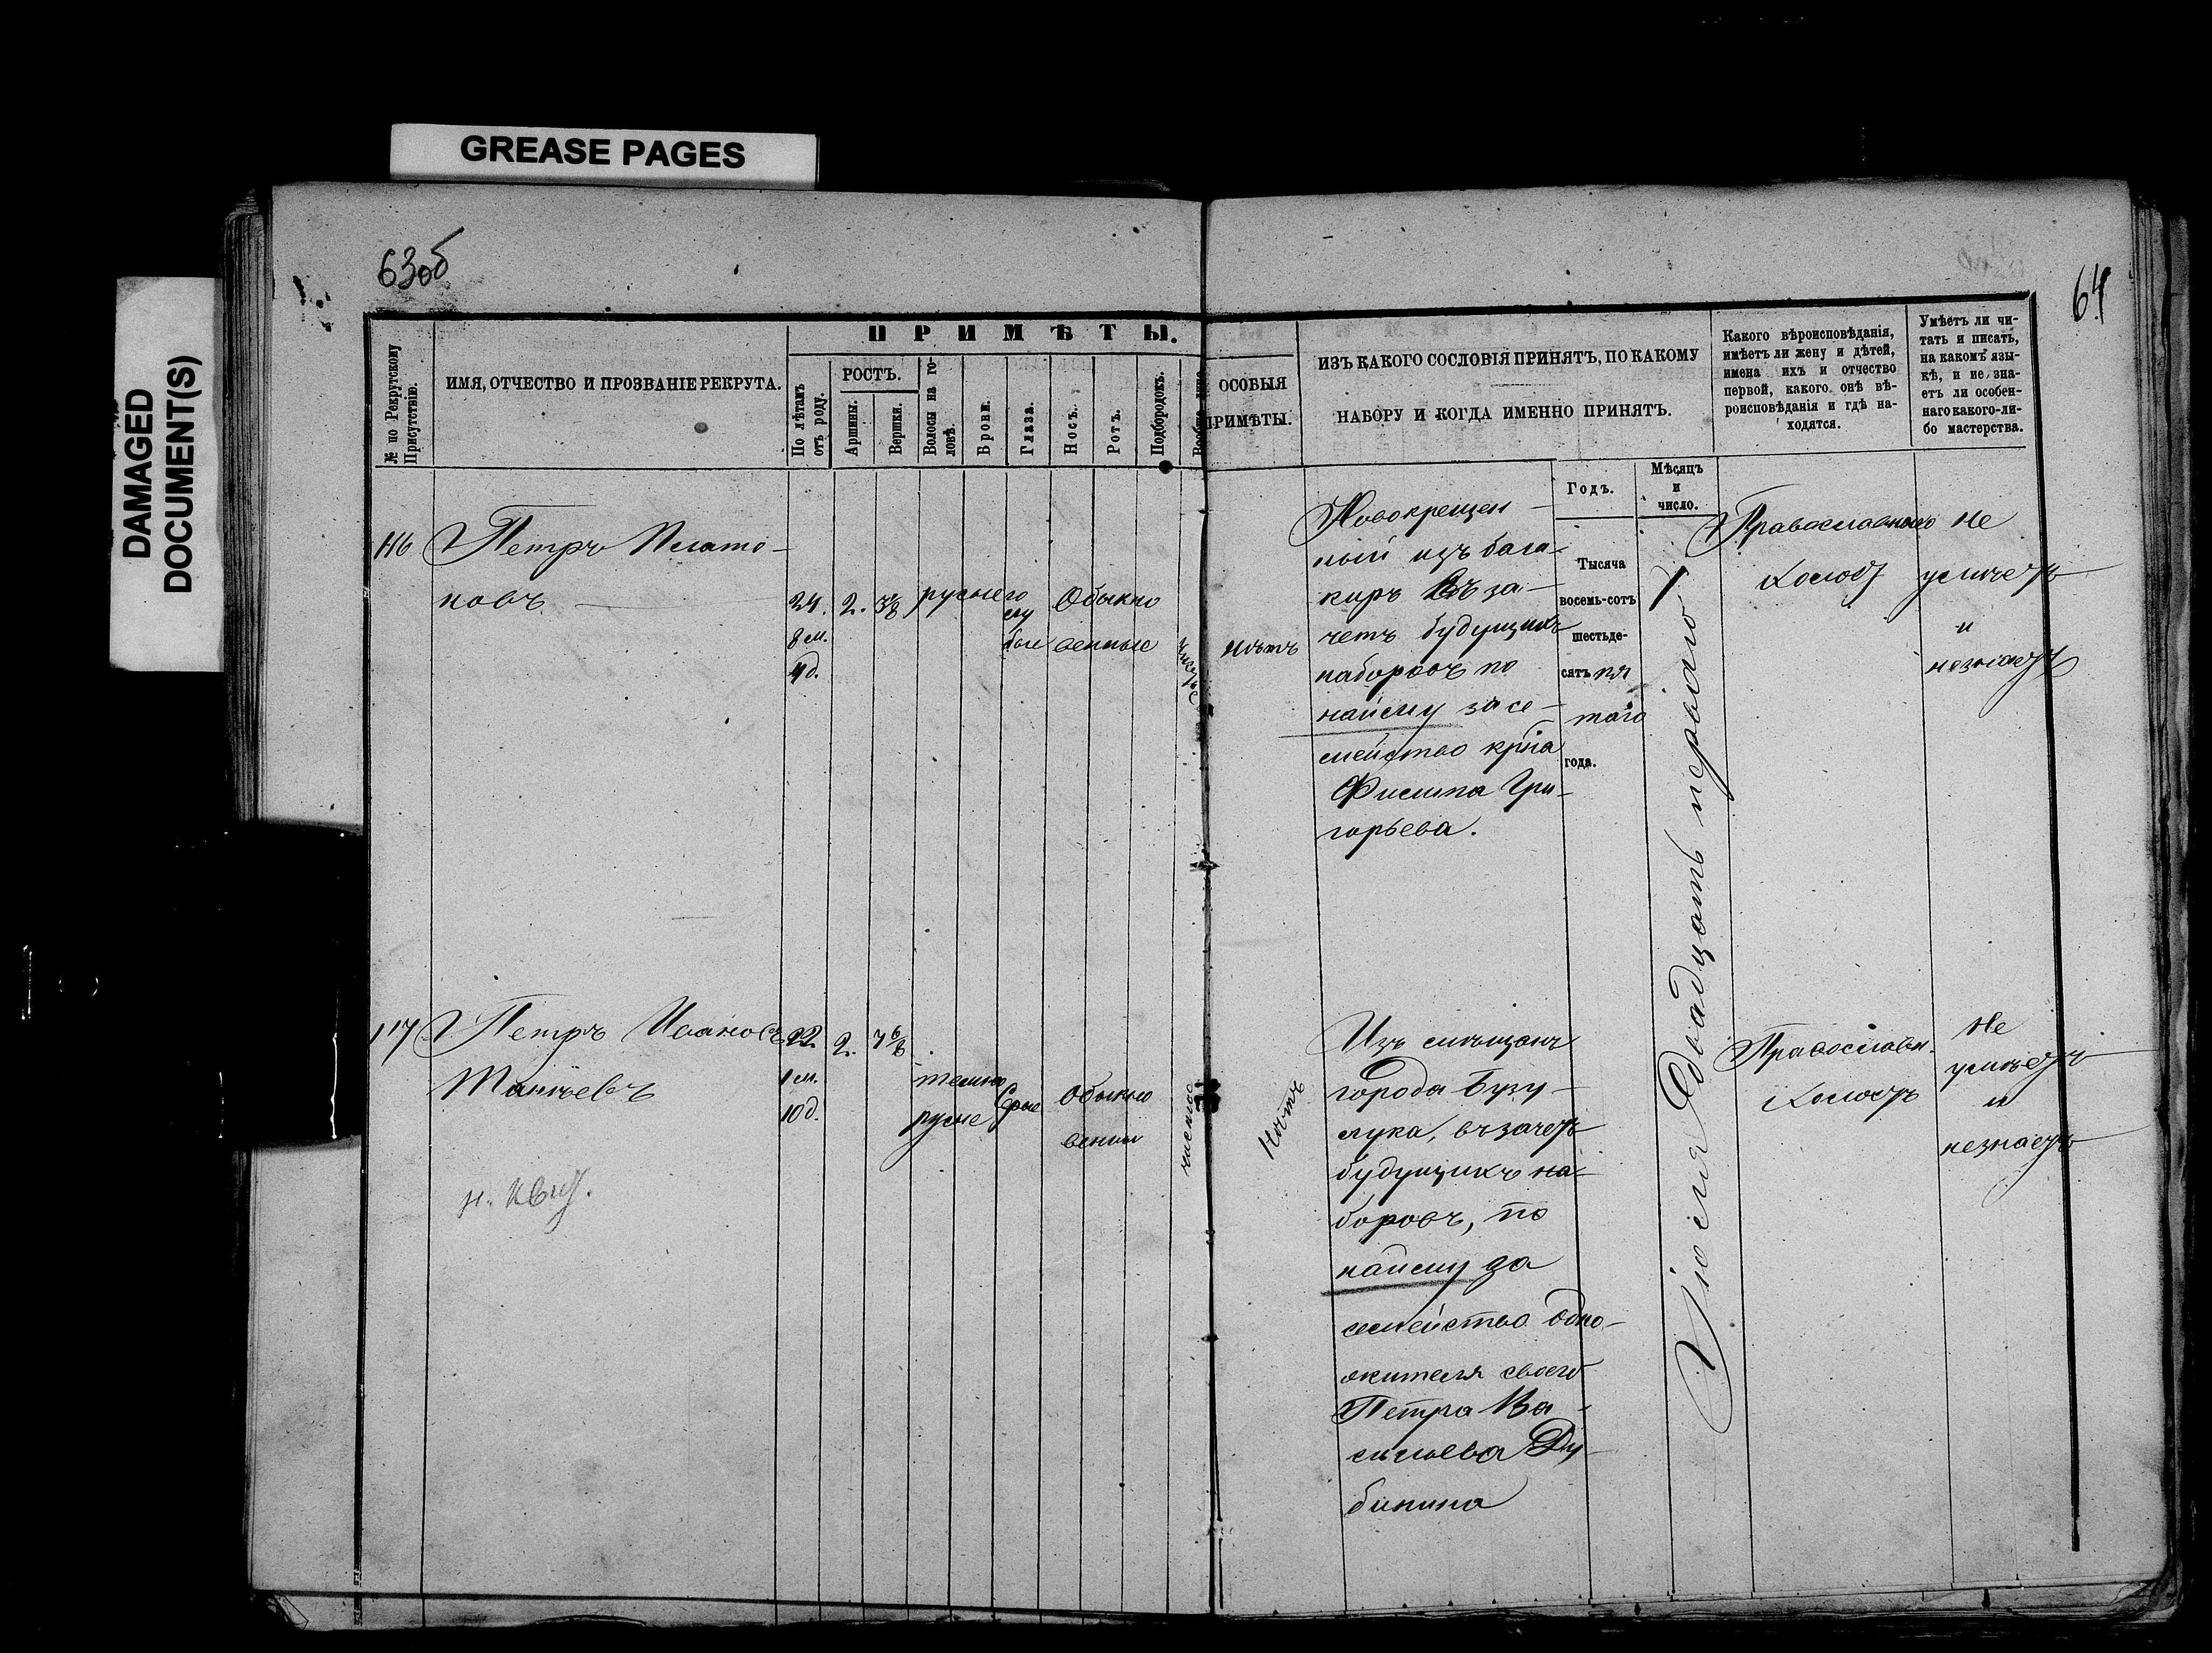 GREASE PAGES
DAMAGED
DOCUMENT(S)
63об
64
№ по Рекрутскому
Присутствію.
ИМЯ, ОТЧЕСТВО И ПРОЗВАНІЕ РЕКРУТА.
ПРИМѢТЫ.
По лѣтамъ
отъ роду.
РОСТЪ.
Аршины.
Вершки.
Волосы на го-
ловѣ.
Брови.
Глаза.
Носъ.
Ротъ.
Подбородокъ.
Вообще лицо
ОСОБЫЯ
ПРИМѢТЫ.
ИЗЪ КАКОГО СОСЛОВІЯ ПРИНЯТЪ, ПО КАКОМУ
НАБОРУ И КОГДА ИМЕННО ПРИНЯТЪ.
Годъ.
Мѣсяцъ
и
число.
Какого вѣроисповѣданія,
имѣетъ ли жену и дѣтей,
имена ихъ и отчество
первой, какого онѣ вѣ-
роисповѣданія и гдѣ на-
ходятся.
Умѣетъ ли чи-
тать и писать,
на какомъ язы-
кѣ, и не зна-
етъ ли особен-
наго какого-ли-
бо мастерства.
116
Петръ Плато-
новъ
24.
8 м.
4 д.
2.
3/8
русые
го
лу
бые
Обыкно
венные
чистое
нѣтъ
Новокрещен-
ный изъ баш-
киръ въ за-
четъ будущихъ
наборовъ по
найму за се-
мейство кр҃на
Филипа Гри-
горьева.
Тысяча
восемь-сотъ
шестьде-
сятъ пя
таго
года.
Іюля двадцать перваго
Православнаго
Холостъ
Не
умѣетъ
и
незнаетъ
117
Петръ Ивановъ
22.
1 м.
10 д.
2.
4 6/8
темно
русые
Сѣрые
Обыкно
венны
чистое
Нѣтъ
Изъ мѣщанъ
города Бузу-
лука, въ зачетъ
будущихъ на-
боровъ, по
найму за
семейство одно-
жителя своего
Петра Ва-
сильева Ду-
бинина
Православн.
Холостъ
Не
умѣетъ
и
незнаетъ
н. квит.